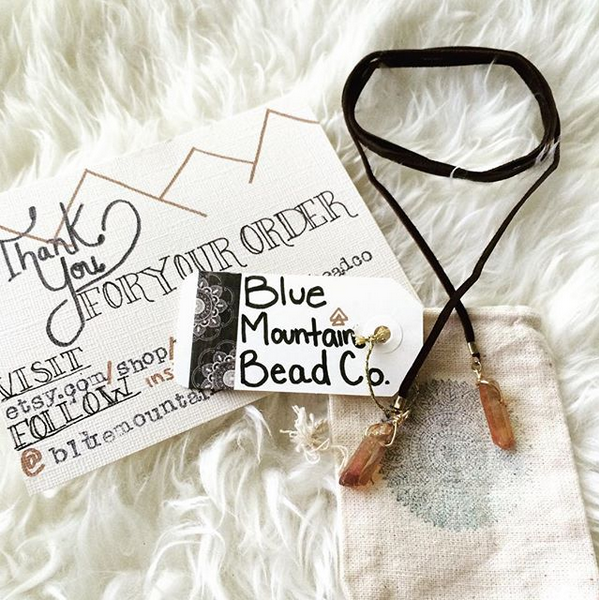 Thank
You
FOR YOUR ORDER
VISIT
etsy.com/shop/
FOLLOW
@bluemountai
Blue
Mountain
Bead Co.